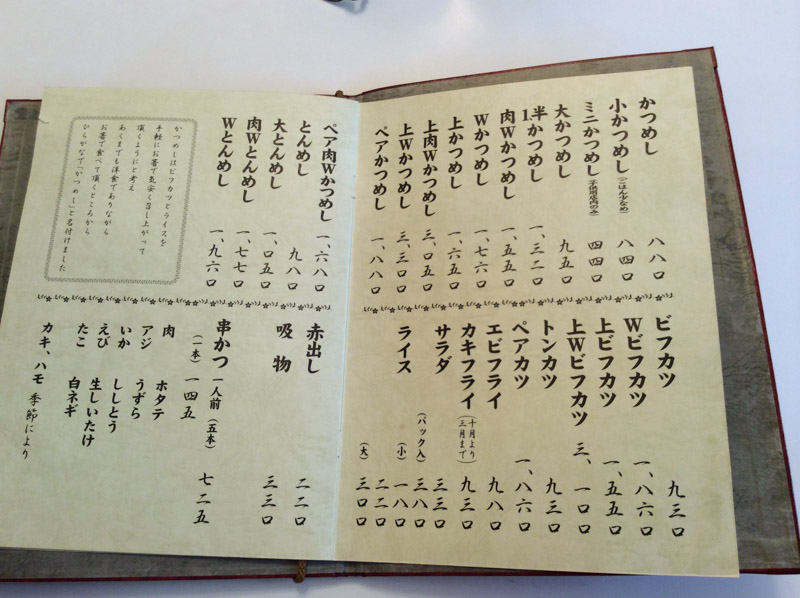 かつめし 八八〇
小かつめし(ごはん少なめ) 八四〇
ミニかつめし(子供用店内のみ) 四四〇
大かつめし 九五〇
1.半かつめし 一、三二〇
肉Wかつめし 一、五五〇
Wかつめし 一、七六〇
上かつめし 一、六五〇
上肉Wかつめし 三、〇五〇
上Wかつめし 三、三〇〇
ペアかつめし 一、八八〇
ビフカツ 九三〇
Wビフカツ 一、八六〇
上ビフカツ 一、五五〇
上Wビフカツ 三、一〇〇
トンカツ 九三〇
ペアカツ 一、八六〇
エビフライ 九八〇
カキフライ(十月より三月まで) 九三〇
サラダ 三三〇
(パック入) 三八〇
ライス (小) 一八〇
二二〇
(大) 三〇〇
ペア肉Wかつめし 一、六八〇
とんめし 九八〇
大とんめし 一、〇五〇
肉Wとんめし 一、七七〇
Wとんめし 一、九六〇
かつめしはビフカツとライスを
手軽にお箸で気安く召し上がって
頂くようにと考え
あくまでも洋食でありながら
お箸で食べて頂くところから
ひらがなで「かつめし」と名付けました
赤出し 二二〇
吸物 三三〇
串かつ 一人前(五本) 七二五
(一本) 一四五
肉 ホタテ
アジ うずら
いか ししとう
えび 生しいたけ
たこ 白ネギ
カキ、ハモ 季節により